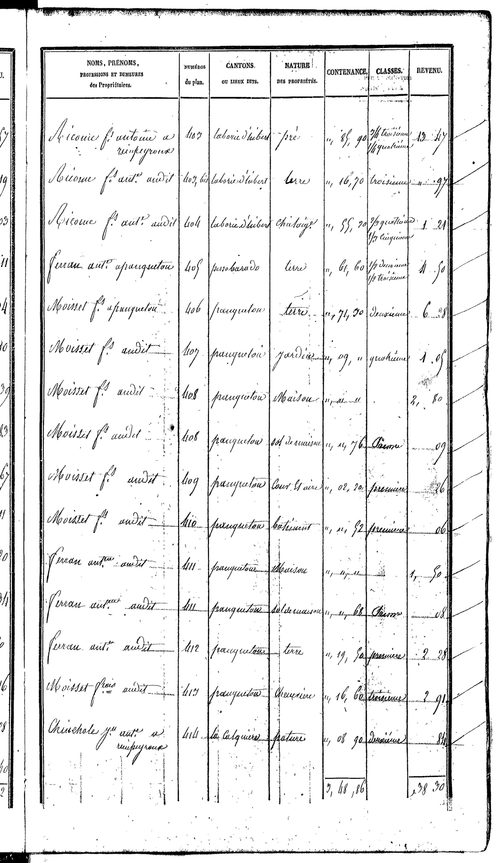 NOMS, PRÉNOMS, PROFESSIONS ET DEMEURES des Propriétaires. NUMÉROS du plan. CANTONS. OU LIEUX DITS. NATURE DES PROPRIÉTÉS. CONTENANCE. CLASSES. REVENU.
Ricome fs antoine a rinpeyroux 403 laborie d'imbert pré ,, 85, 90 troisième quatrième 13 47
Ricome fs antne audit 403 bis laborie d'imbert terre ,, 16, 70 troisième ,, 97
Ricome fs antne audit 404 laborie d'imbert ,, 55, 20 quatrième cinquième 1 21
Ferran antne a panqueton 405 terre ,, 61, 60 1/2 deuxième 1/2 troisième 4 50
Moisset fs a panqueton 406 panqueton terre ,, 74, 30 deuxième 6 28
Moisset fs audit 407 panqueton jardin ,, 09, ,, quatrième 1 05
Moisset fs audit 408 panqueton Maison ,, ,, ,, 2, 80
Moisset fs audit 408 panqueton sol de maison ,, ,, 76 09
Moisset fs audit 409 panqueton Cour et aire ,, 02, 20 première 26
Moisset fs audit 410 panqueton bâtiment ,, ,, 52 première 06
Ferran antne audit 411 panqueton Maison ,, ,, ,, 1, 50
Ferran antne audit 411 panqueton sol de maison ,, ,, 68 08
Ferran antne audit 412 panqueton terre ,, 19, 50 première 2 28
Moisset frois audit 413 panqueton Chenvière ,, 16, 60 troisième 2 91
Chinchole jn antne a rinpeyroux 414 pature ,, 08 90 deuxième 84
3, 48, 86 38 30